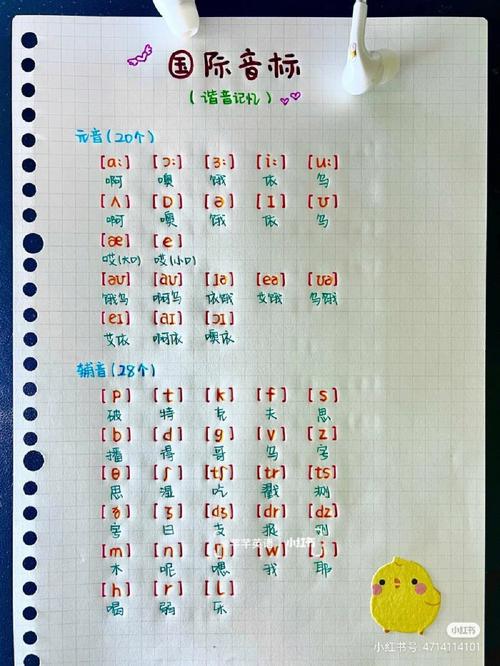 国际音标
（谐音记忆）
元音（20个）
[ɑː] [ɔː] [ɜː] [iː] [uː]
啊 噢 饿 依 乌
[ʌ] [ɒ] [ə] [ɪ] [ʊ]
啊 噢 饿 依 乌
[æ] [e]
哎(大口) 哎(小口)
[əʊ] [aʊ] [ɪə] [eə] [ʊə]
饿乌 啊乌 依饿 艾饿 乌饿
[eɪ] [aɪ] [ɔɪ]
艾依 啊依 噢依
辅音（28个）
[p] [t] [k] [f] [s]
破 特 克 夫 思
[b] [d] [g] [v] [z]
播 得 哥 乌 字
[θ] [ʃ] [tʃ] [tr] [ts]
思 湿 吃 戳 测
[ʒ] [dʒ] [dr] [dz]
字 日 支
芊英语 小红书
[m] [n] [ŋ] [w] [j]
木 呢 嗯 我 耶
[h] [r] [l]
喝 弱 乐
小红书
小红书号 4714114101